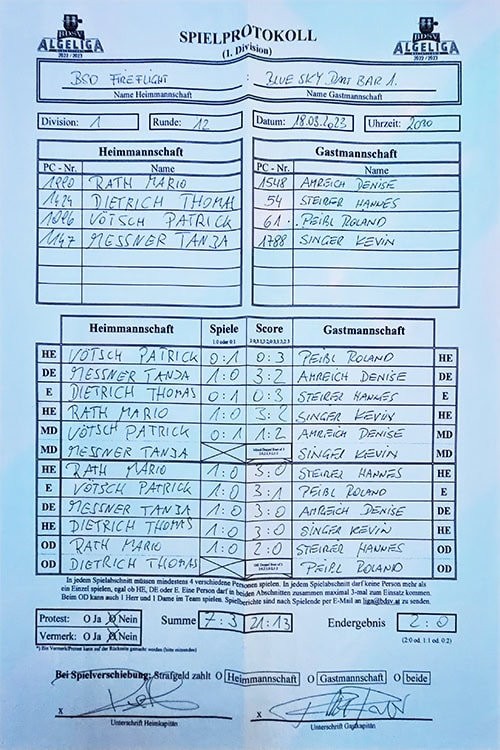 BDSV
ALGELIGA
2022 / 2023
SPIELPROTOKOLL
(1. Division)
BDSV
ALGELIGA
2022 / 2023
BSD FIREFLIGHT : BLUE SKY DART BAR 1.
Name Heimmannschaft Name Gastmannschaft
Division: 1 Runde: 12 Datum: 18.03.2023 Uhrzeit: 2000
Heimmannschaft Gastmannschaft
PC - Nr. Name PC - Nr. Name
RATH MARIO 1548 AMREICH DENISE
1424 DIETRICH THOMAS 54 STEIRER HANNES
VÖTSCH PATRICK 61 PEIBL ROLAND
1147 MESSNER TANJA 1788 SINGER KEVIN
Heimmannschaft Spiele Score Gastmannschaft
1:0 oder 0:1
HE VÖTSCH PATRICK 0:1 0:3 PEIBL ROLAND HE
DE MESSNER TANJA 1:0 3:2 AMREICH DENISE DE
E DIETRICH THOMAS 0:1 0:3 STEIRER HANNES E
HE RATH MARIO 1:0 3:2 SINGER KEVIN HE
MD VÖTSCH PATRICK 0:1 1:2 AMREICH DENISE MD
MD MESSNER TANJA SINGER KEVIN MD
HE RATH MARIO 1:0 3:0 STEIRER HANNES HE
E VÖTSCH PATRICK 1:0 3:1 PEIBL ROLAND E
DE MESSNER TANJA 1:0 3:0 AMREICH DENISE DE
HE DIETRICH THOMAS 1:0 3:0 SINGER KEVIN HE
OD RATH MARIO 1:0 2:0 STEIRER HANNES OD
OD DIETRICH THOMAS PEIBL ROLAND OD
In jedem Spielabschnitt müssen mindestens 4 verschiedene Personen spielen. In jedem Spielabschnitt darf keine Person mehr als
ein Einzel spielen, egal ob HE, DE oder E. Eine Person darf in beiden Abschnitten zusammen maximal 3-mal zum Einsatz kommen.
Beim OD kann auch 1 Herr und 1 Dame im Team spielen. Spielberichte sind nach Spielende per E-Mail an liga@bdsv.at zu senden.
Protest: O Ja O Nein Summe 7:3 21:13 Endergebnis 2:0
Vermerk: O Ja O Nein (2:0 od. 1:1 od. 0:2)
*) Ein Vermerk/Protest kann auf der Rückseite gemacht werden (bitte ankreuzen)
Bei Spielverschiebung: Strafgeld zahlt O Heimmannschaft O Gastmannschaft O beide
x x
Unterschrift Heimkapitän Unterschrift Gastkapitän